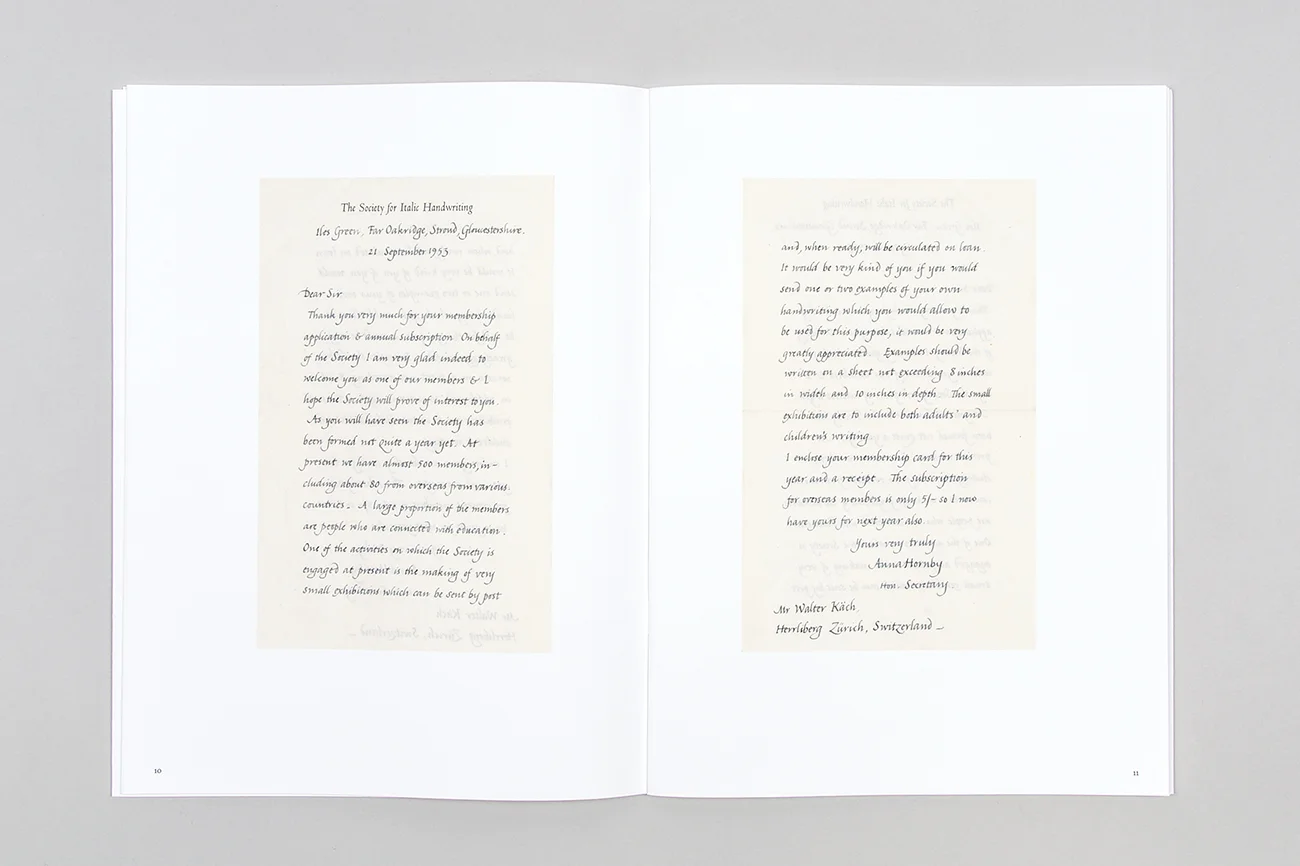 The Society for Italic Handwriting
Iles Green, Far Oakridge, Stroud, Gloucestershire.
21 September 1953
Dear Sir
Thank you very much for your membership
application & annual subscription On behalf
of the Society I am very glad indeed to
welcome you as one of our members & I
hope the Society will prove of interest to you.
As you will have seen the Society has
been formed not quite a year yet. At
present we have almost 500 members, in-
cluding about 80 from overseas from various
countries. A large proportion of the members
are people who are connected with education.
One of the activities on which the Society is
engaged at present is the making of very
small exhibitions which can be sent by post
10
and, when ready, will be circulated on loan.
It would be very kind of you if you would
send one or two examples of your own
handwriting which you would allow to
be used for this purpose, it would be very
greatly appreciated. Examples should be
written on a sheet not exceeding 8 inches
in width and 10 inches in depth. The small
exhibitions are to include both adults' and
children's writing.
I enclose your membership card for this
year and a receipt. The subscription
for overseas members is only 5/- so I now
have yours for next year also.
Yours very truly
Anna Hornby
Hon. Secretary.
Mr Walter Käch,
Herrliberg Zürich, Switzerland –
11